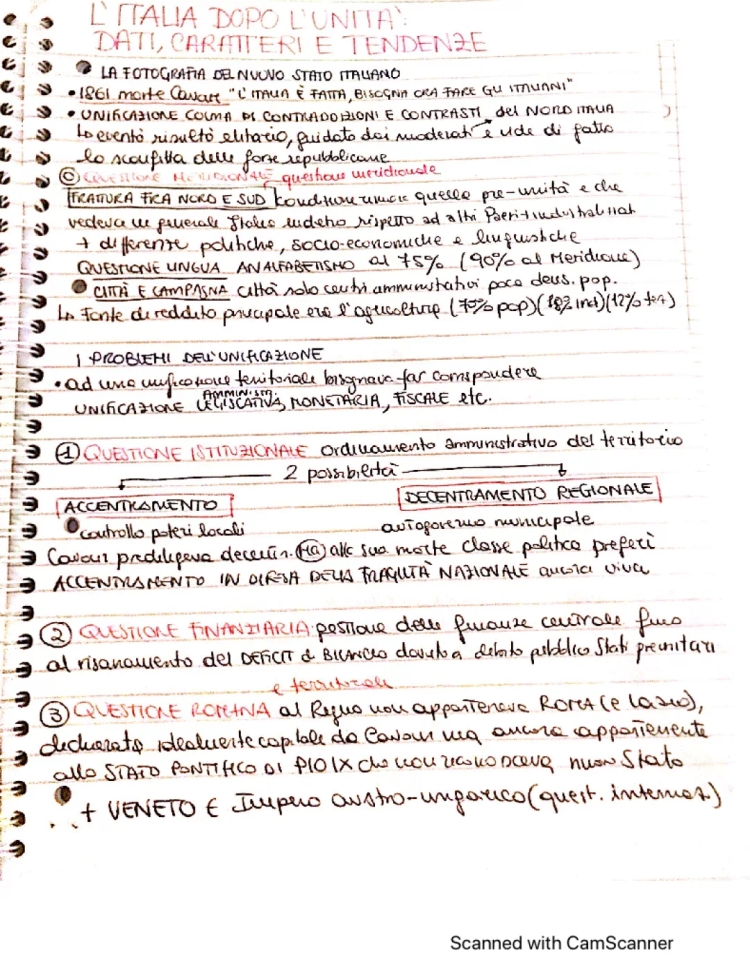 L'ITALIA DOPO L'UNITA':
DATI, CARATTERI E TENDENZE
LA FOTOGRAFIA DEL NUOVO STATO ITALIANO
• 1861 morte Cavour "L'ITALIA È FATTA, BISOGNA ORA FARE GLI ITALIANI"
• UNIFICAZIONE COLMA DI CONTRADDIZIONI E CONTRASTI, del NORD ITALIA
Lo evento risultò elitario, guidato dai moderati e vide di fatto
la sconfitta delle forze repubblicane
QUESTIONE MERIDIONALE, questione meridionale
FRATTURA FRA NORD E SUD condizionamento quello pre-unità e che
vedeva in generale Italia indietro rispetto ad altri Paesi + industrializzati
+ differenze politiche, socio-economiche e linguistiche
QUESTIONE LINGUA ANALFABETISMO al 75% (90% al Meridione)
CITTÀ E CAMPAGNA città solo centri amministrativi poca dens. pop.
La fonte di reddito principale era l'agricoltura (70% pop) (18% ind) (12% ter)
I PROBLEMI DELL'UNIFICAZIONE
• ad una unificazione territoriale bisognava far corrispondere
AMMINIST.
UNIFICAZIONE LEGISLATIVA, MONETARIA, FISCALE etc.
① QUESTIONE ISTITUZIONALE ordinamento amministrativo del territorio
2 possibilità
ACCENTRAMENTO DECENTRAMENTO REGIONALE
controllo poteri locali autogoverno municipale
Cavour prediligeva decentr. Ma alla sua morte classe politica preferì
ACCENTRAMENTO IN DIFESA DELLA FRAGILITÀ NAZIONALE ancora viva
② QUESTIONE FINANZIARIA: gestione delle finanze centrale fino
al risanamento del DEFICIT di BILANCIO dovuto a debito pubblico Stati preunitari
e territoriale
③ QUESTIONE ROMANA al Regno non apparteneva ROMA (e Lazio),
dichiarata idealmente capitale da Cavour ma ancora appartenente
allo STATO PONTIFICO DI PIO IX che non riconosceva nuovo Stato
+ VENETO E Impero austro-ungarico (quest. internaz.)
Scanned with CamScanner